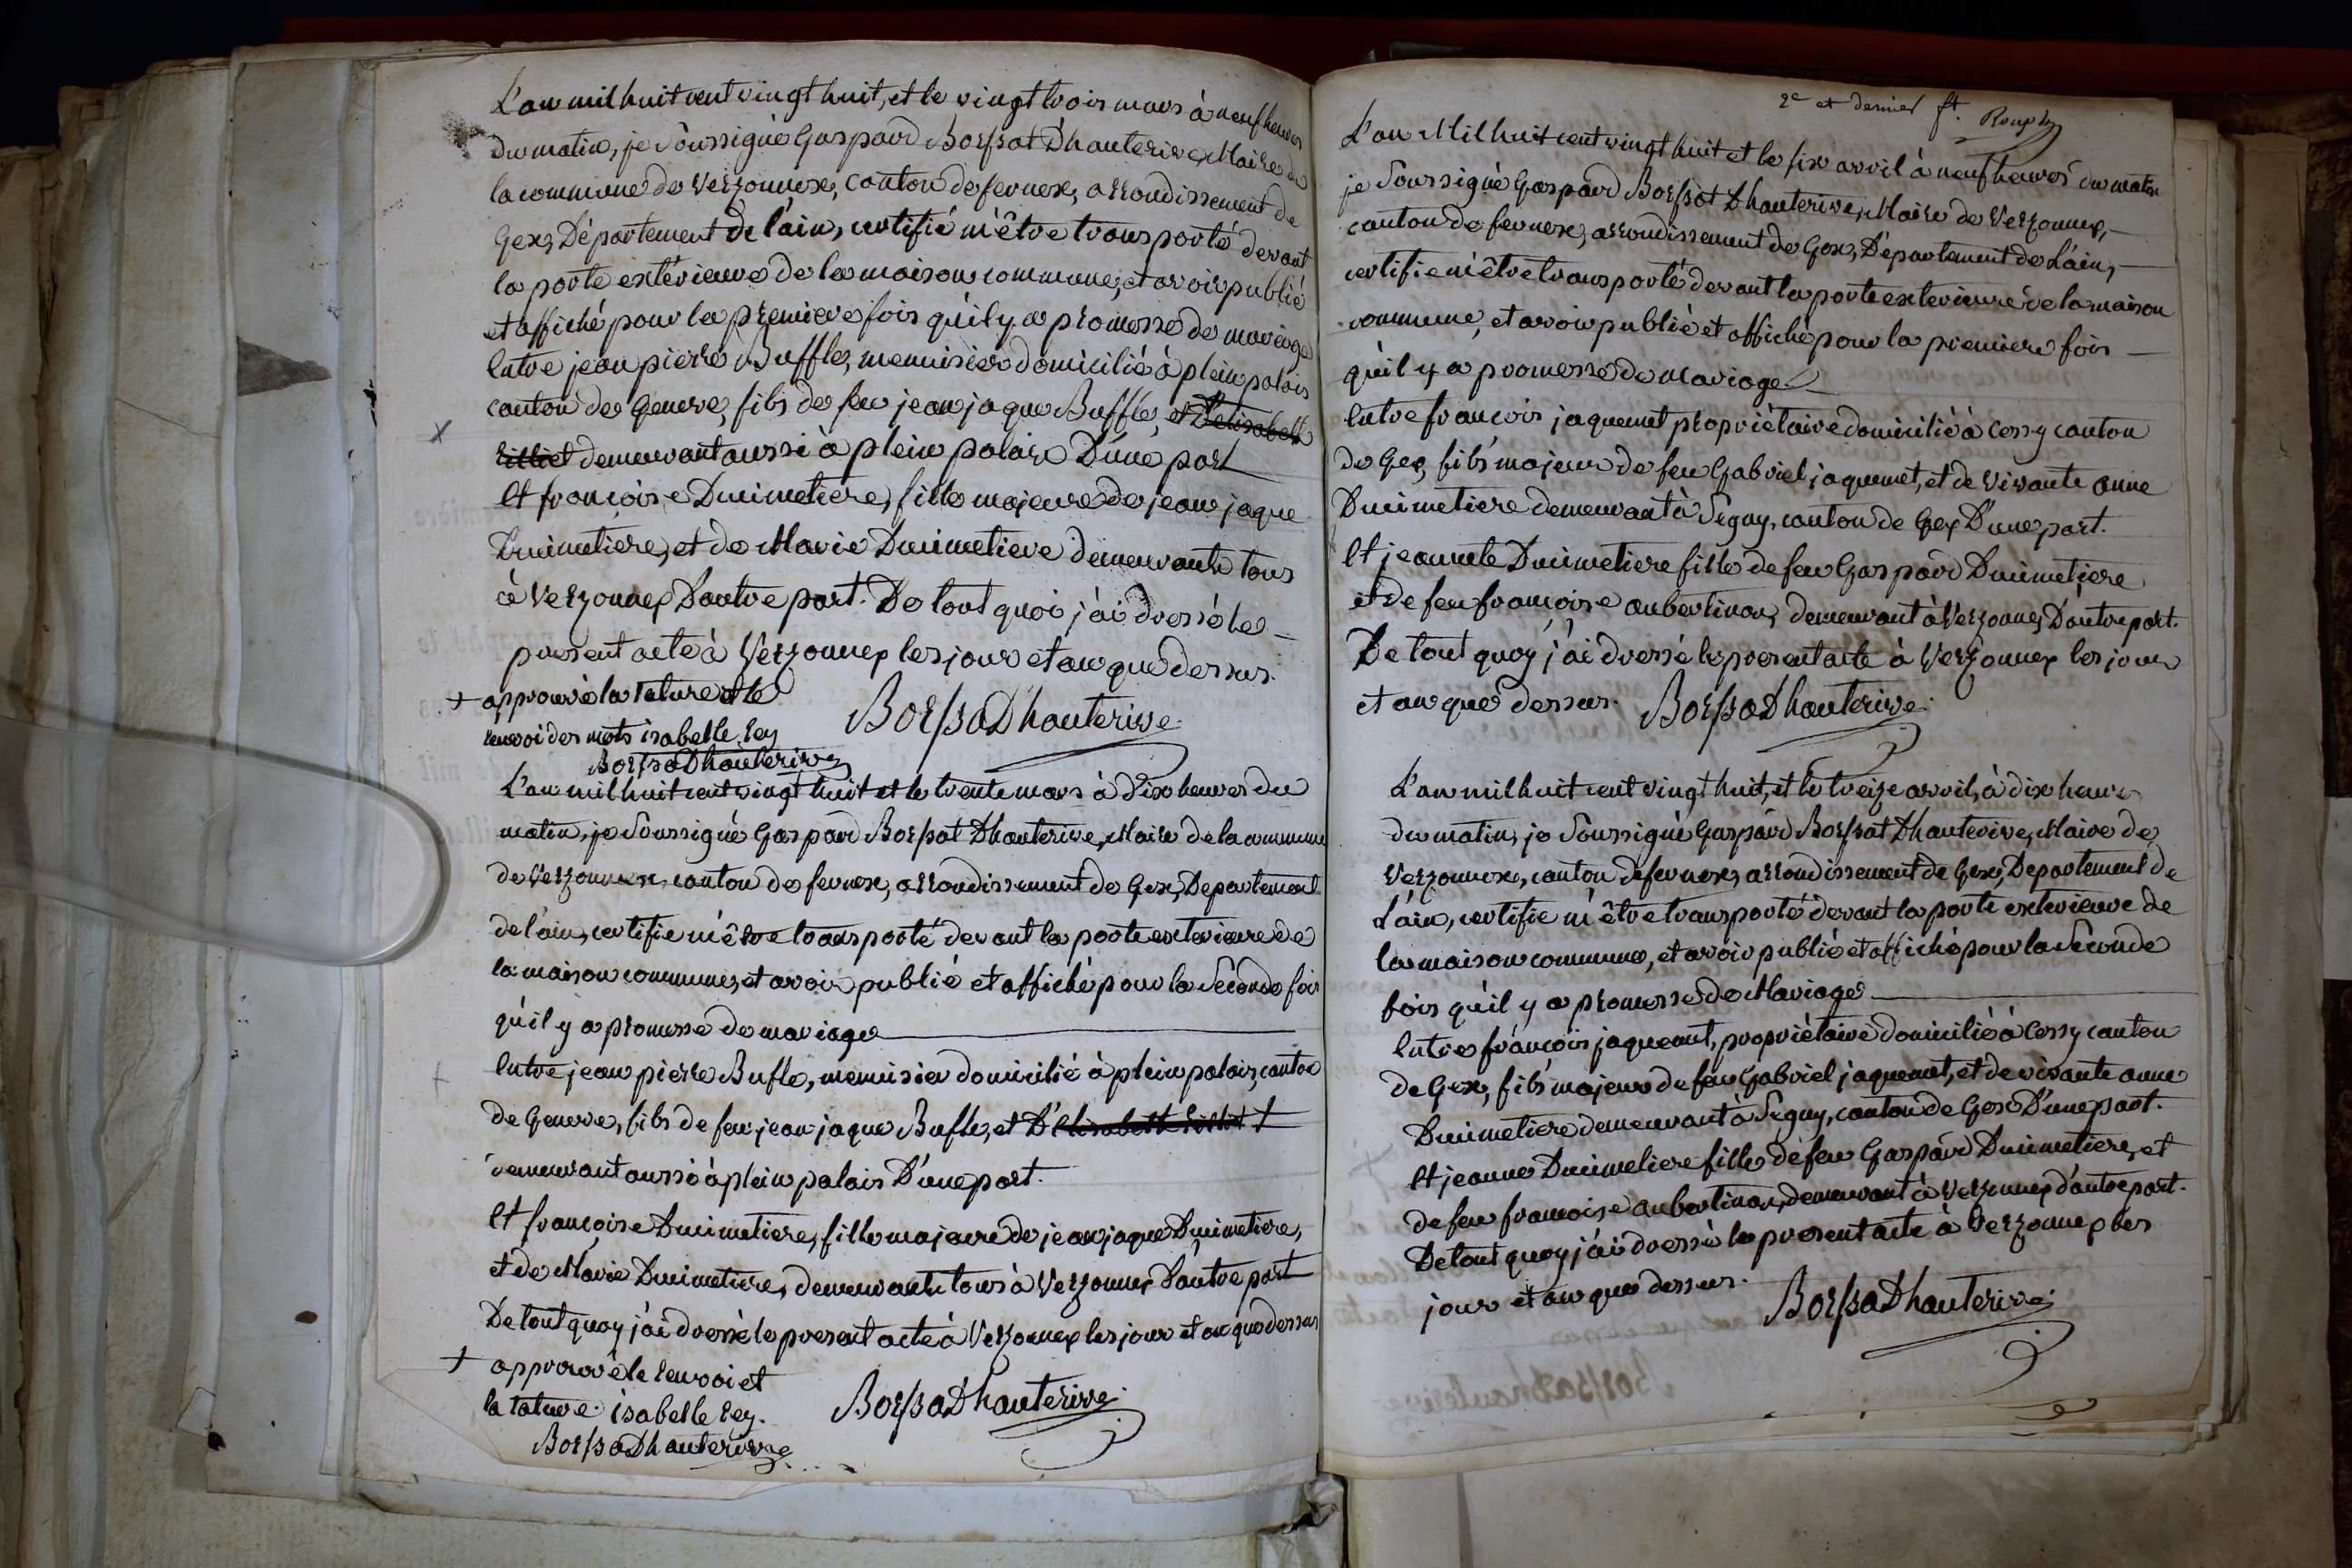 L'an mil huit cent vingt huit, et le vingt trois mars à neuf heures
du matin, je Soussigné Gaspard Borssat Dhauterive, Maire de
la commune de Verzonnex, canton de fernex, arrondissement de
Gex, Département de l'ain, certifié m'être transporté devant
la porte extérieure de la maison commune, et avoir publié
et affiché pour la premiere fois qu'il y a promesse de mariage
Entre jean pierre Buffle, menuisier domicilié à plein palais
canton de Geneve, fils de feu jean jaque Buffle, et D'elisabeth
Rilliet demeurant aussi à plein palais D'une part
Et françoise Ducimetiere, fille majeure de jean jaque
Ducimetiere, et de Marie Ducimetiere demeurants tous
à Verzonnex D'autre part. De tout quoi j'ai dressé le
present acte à Verzonnex les jour et an que dessus.
+ approuvé la rature et le
renvoi des mots isabelle rey
BorssaDhauterive
BorssaDhauterive
L'an mil huit cent vingt huit et le trente mars à dix heures du
matin, je Soussigné Gaspard Borssat Dhauterive, Maire de la commune
de Verzonnex, canton de fernex, arrondissement de Gex, Departement
de l'ain, certifie m'être transporté devant la porte exterieure de
la maison commune, et avoir publié et affiché pour la Seconde fois
qu'il y a promesse de mariage
Entre jean pierre Bufle, menuisier domicilié à plein palais, canton
de Geneve, fils de feu jean jaque Bufle, et D'Elisabeth Rilliet +
demeurant aussi à plein palais D'une part.
Et françoise Ducimetiere, fille majeure de jean jaque Ducimetiere,
et de Marie Ducimetiere, demeurants tous à Verzonnex D'autre part
De tout quoy j'ai dressé le present acte à Verzonnex les jour et an que dessus
+ approuvé le renvoi et
la rature. isabelle rey.
BorssaDhauterive
BorssaDhauterive
2e et dernier ft.
L'an Mil huit cent vingt huit et le six avril à neuf heures du matin
je Soussigné Gaspard Borssat Dhauterive, Maire de Verzonnex,
canton de fernex, arrondissement de Gex, Département de L'ain,
certifie m'être transporté devant la porte exterieure de la maison
commune, et avoir publié et affiché pour la premiere fois
qu'il y a promesse de Mariage
Entre françois jaquemet propriétaire domicilié à Cessy canton
de Gex, fils majeur de feu Gabriel jaquemet, et de vivante anne
Ducimetiere demeurant à Segny, canton de Gex D'une part.
Et jeannete Ducimetiere fille de feu Gaspard Ducimetiere
et de feu françoise aubertinoz, demeurant à Verzonnex D'autre part.
De tout quoy j'ai dressé le present acte à Verzonnex les jour
et an que dessus. BorssaDhauterive
L'an mil huit cent vingt huit, et le treize avril, à dix heures
du matin, je Soussigné Gaspard Borssat Dhauterive, Maire de
Verzonnex, canton de fernex, arrondissement de Gex, Departement de
L'ain, certifie m'être transporté devant la porte exterieure de
la maison commune, et avoir publié et affiché pour la Seconde
fois qu'il y a promesse de Mariage
Entre françois jaquemet, propriétaire domicilié à Cessy canton
de Gex, fils majeur de feu Gabriel jaquemet, et de vivante anne
Ducimetiere demeurant à Segny, canton de Gex D'une part.
Et jeanne Ducimetiere fille de feu Gaspard Ducimetiere, et
de feu françoise aubertinoz, demeurant à Verzonnex d'autre part.
De tout quoy j'ai dressé le present acte à Verzonnex les
jour et an que dessus. BorssaDhauterive